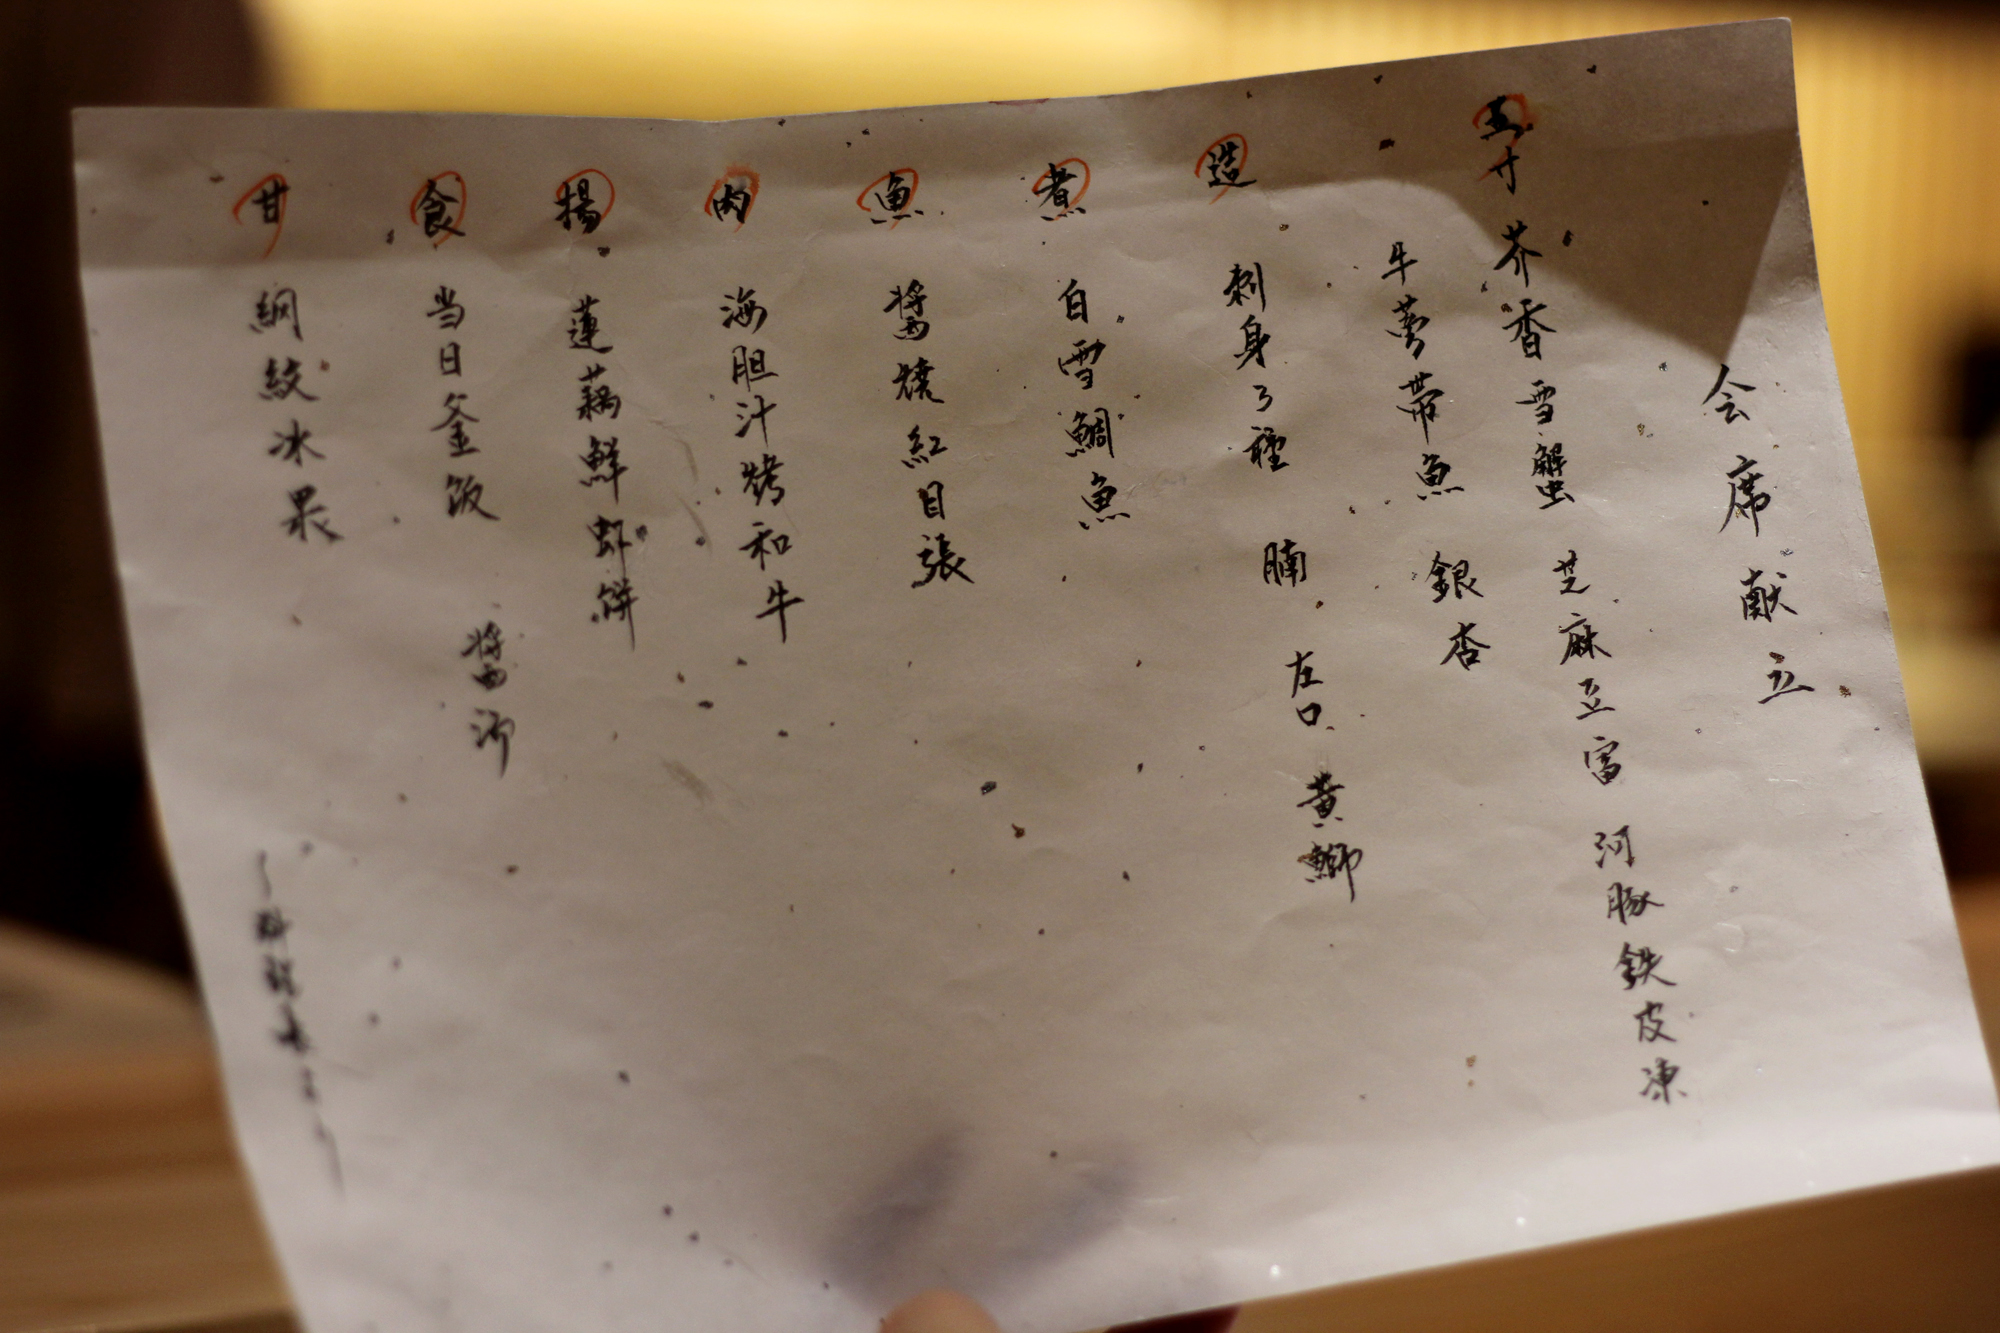 会席献立
五寸 芥香雪蟹 芝麻豆富 河豚鉄皮凍
牛蒡帯魚 銀杏
造 刺身3種 腩 左口 黄鰤
煮 白雪鯛魚
魚 醤焼紅目張
肉 海胆汁烤和牛
揚 蓮藕鮮虾餅
食 当日釜飯 醤汤
甘 網紋冰果
料理長